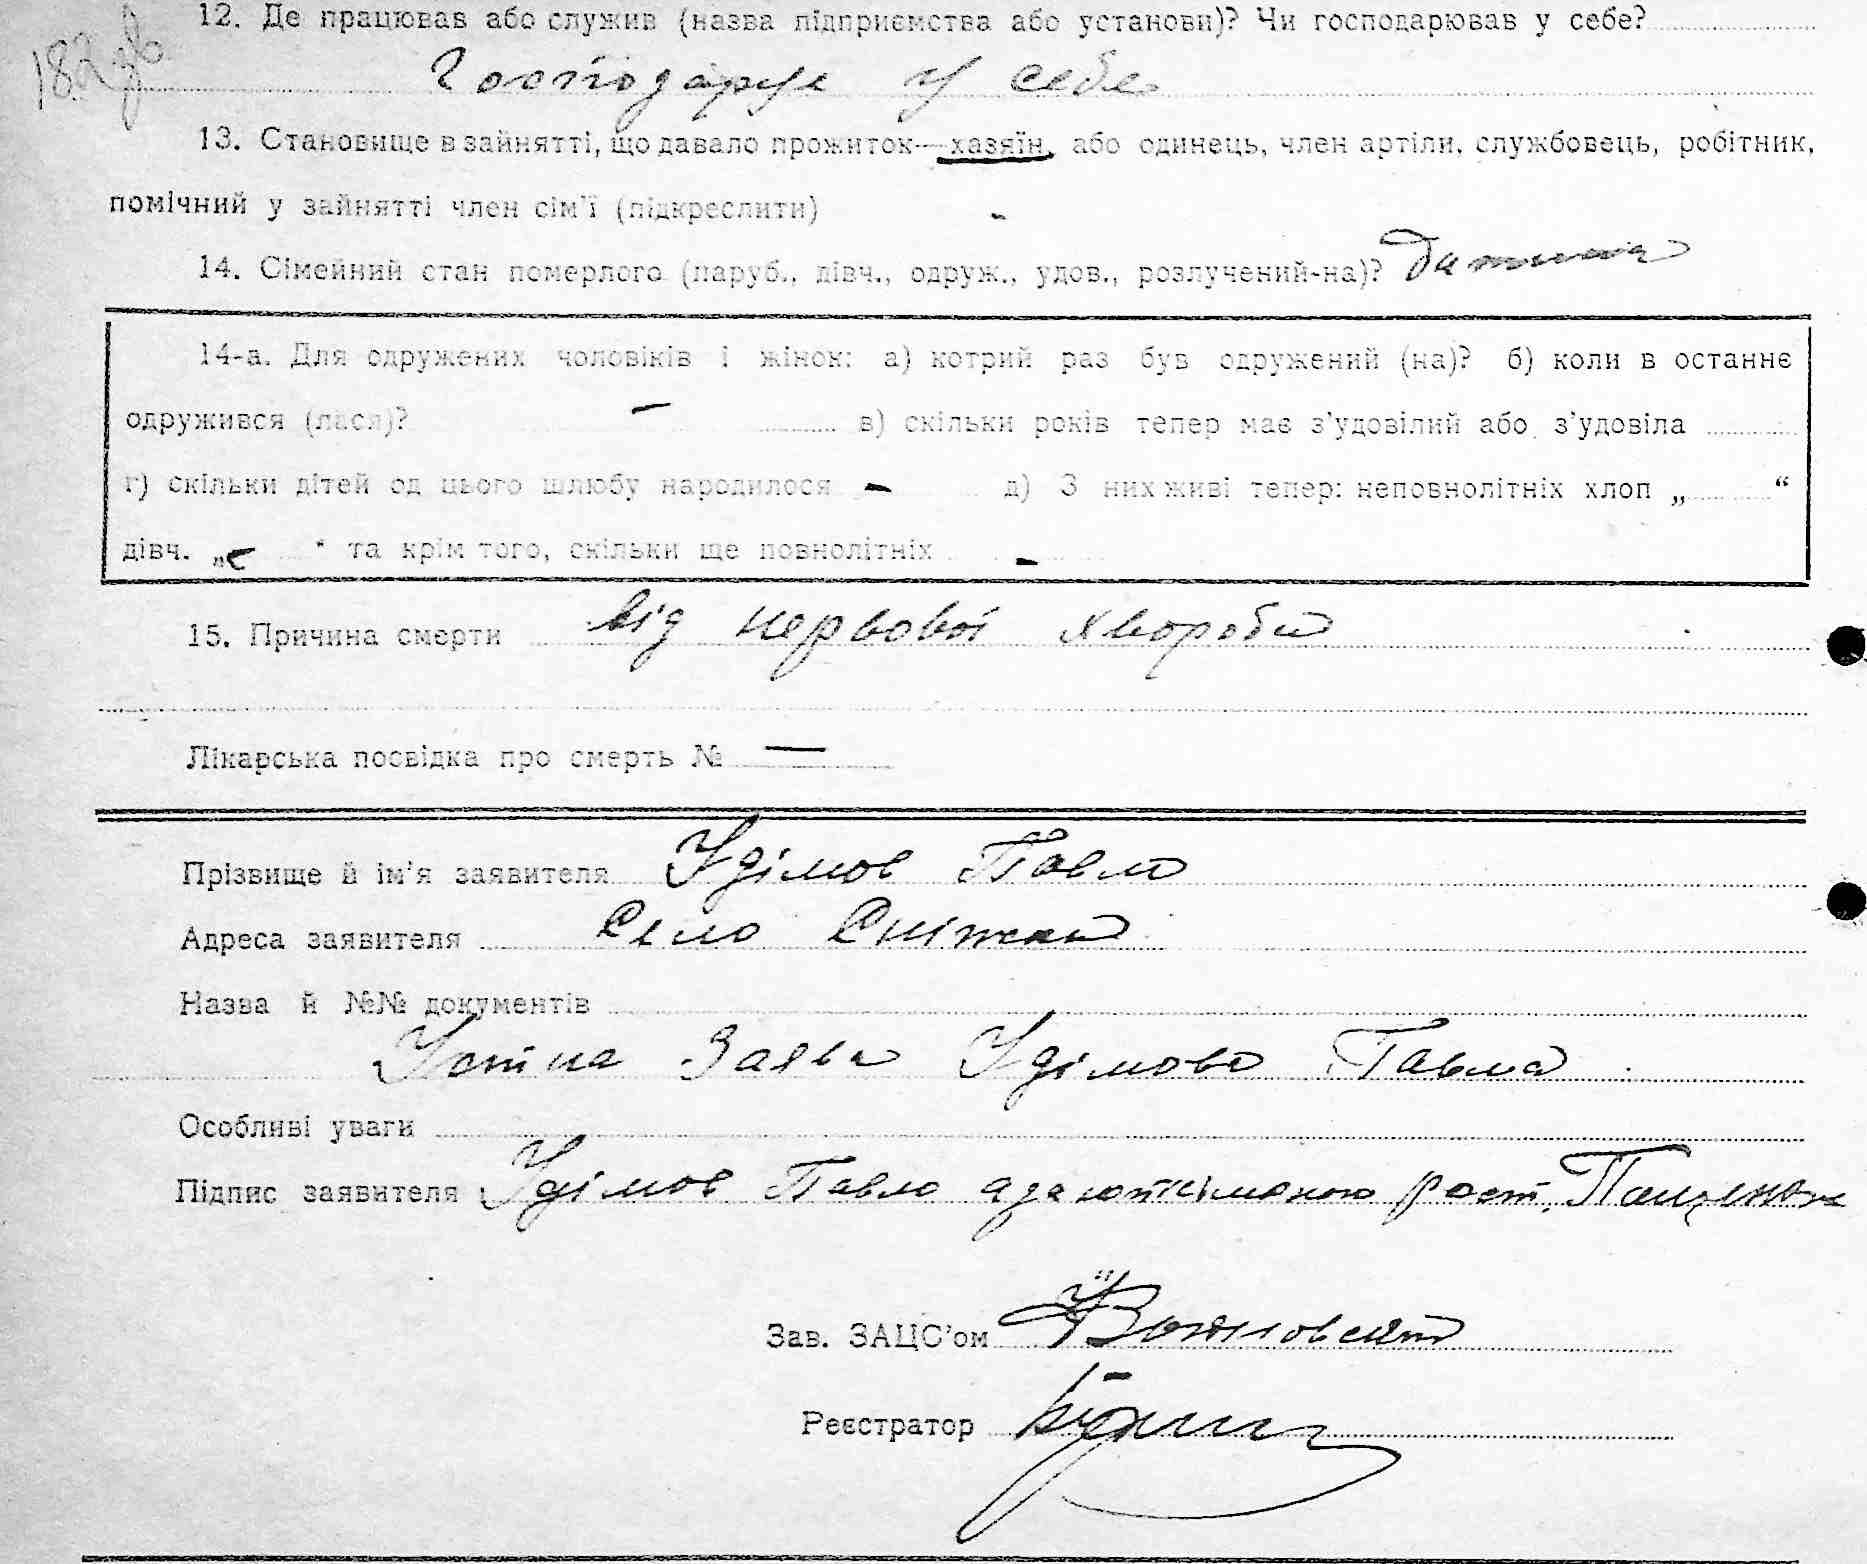 182 зв
12. Де працював або служив (назва підприємства або установи)? Чи господарював у себе?
Господарує у себе
13. Становище в зайнятті, що давало прожиток—хазяїн, або одинець, член артіли, службовець, робітник,
помічний у зайнятті член сім'ї (підкреслити) -
14. Сімейний стан померлого (паруб., дівч., одруж., удов., розлучений-на)? Дитина
14-а. Для одружених чоловіків і жінок: а) котрий раз був одружений (на)? б) коли в останнє
одружився (лася)? — в) скільки років тепер має з'удовілий або з'удовіла
г) скільки дітей од цього шлюбу народилося - д) З них живі тепер: неповнолітніх хлоп „ “
дівч. „ - “ та крім того, скільки ще повнолітніх -
15. Причина смерти від нервової хвороби
Лікарська посвідка про смерть № —
Прізвище й ім'я заявителя Удімов Павло
Адреса заявителя Село Сніжки
Назва й №№ документів
Устна Заява Удімова Павла
Особливі уваги
Підпис заявителя Удімов Павло а за рост.
Зав. ЗАЦС'ом
Реєстратор